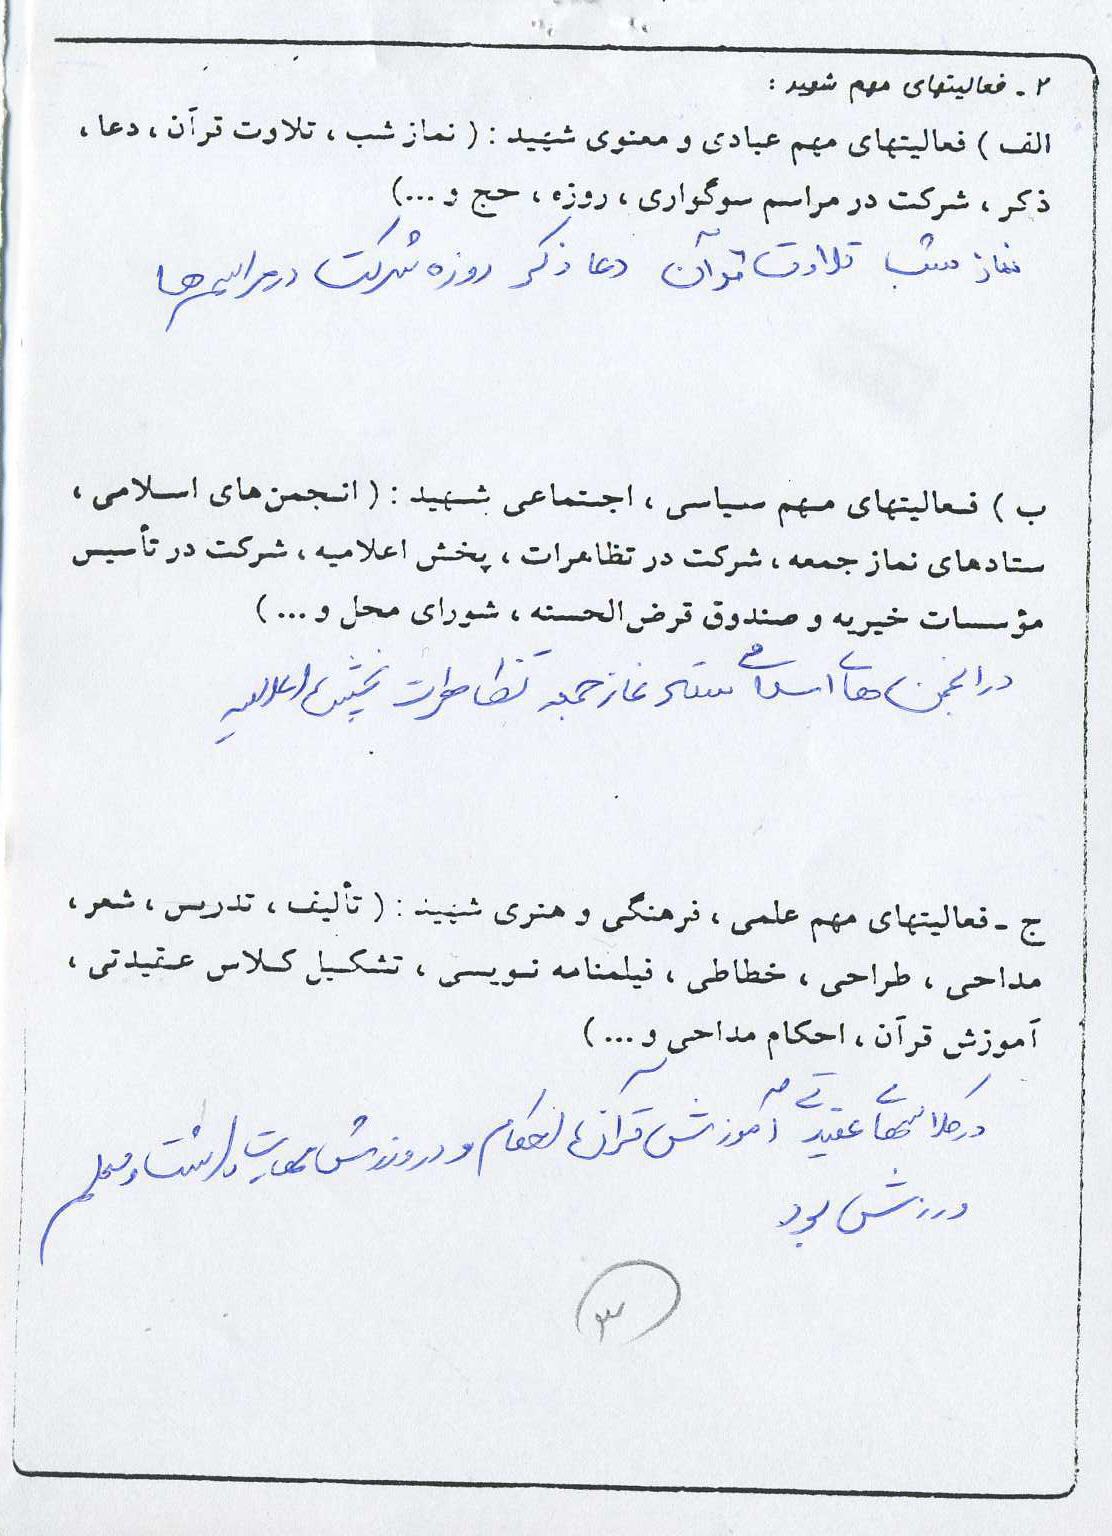 ۲ - فعالیتهای مهم شهید :
الف ) فعالیتهای مهم عبادی و معنوی شهید : ( نماز شب ، تلاوت قرآن ، دعا ،
ذکر ، شرکت در مراسم سوگواری ، روزه ، حج و ...)
نماز شب تلاوت قرآن دعا ذکر روزه شرکت در مراسم ها
ب ) فعالیتهای مهم سیاسی ، اجتماعی شهید : ( انجمن‌های اسلامی ،
ستادهای نماز جمعه ، شرکت در تظاهرات ، پخش اعلامیه ، شرکت در تأسیس
مؤسسات خیریه و صندوق قرض‌الحسنه ، شورای محل و ... )
در انجمن های اسلامی ستاد نماز جمعه تظاهرات پخش اعلامیه
ج - فعالیتهای مهم علمی ، فرهنگی و هنری شهید : ( تألیف ، تدریس ، شعر ،
مداحی ، طراحی ، خطاطی ، فیلمنامه نویسی ، تشکیل کلاس عقیدتی ،
آموزش قرآن ، احکام مداحی و ... )
در کلاسهای عقیدتی آموزش قرآن احکام و در ورزش مهارت داشت و معلم
ورزش بود
۳